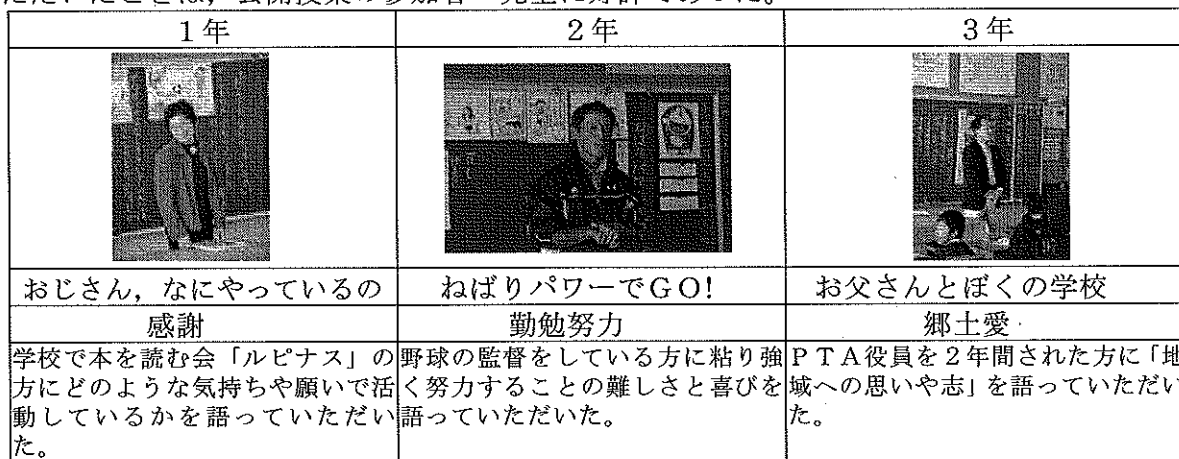 １年
２年
３年
おじさん，なにやっているの
ねばりパワーでＧＯ!
お父さんとぼくの学校
感謝
勤勉努力
郷土愛
学校で本を読む会「ルピナス」の
方にどのような気持ちや願いで活
動しているかを語っていただい
た。
野球の監督をしている方に粘り強
く努力することの難しさと喜びを
語っていただいた。
ＰＴＡ役員を２年間された方に「地
域への思いや志」を語っていただい
た。